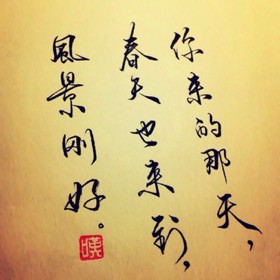 你来的那天，
春天也来到，
風景刚好。
嘆